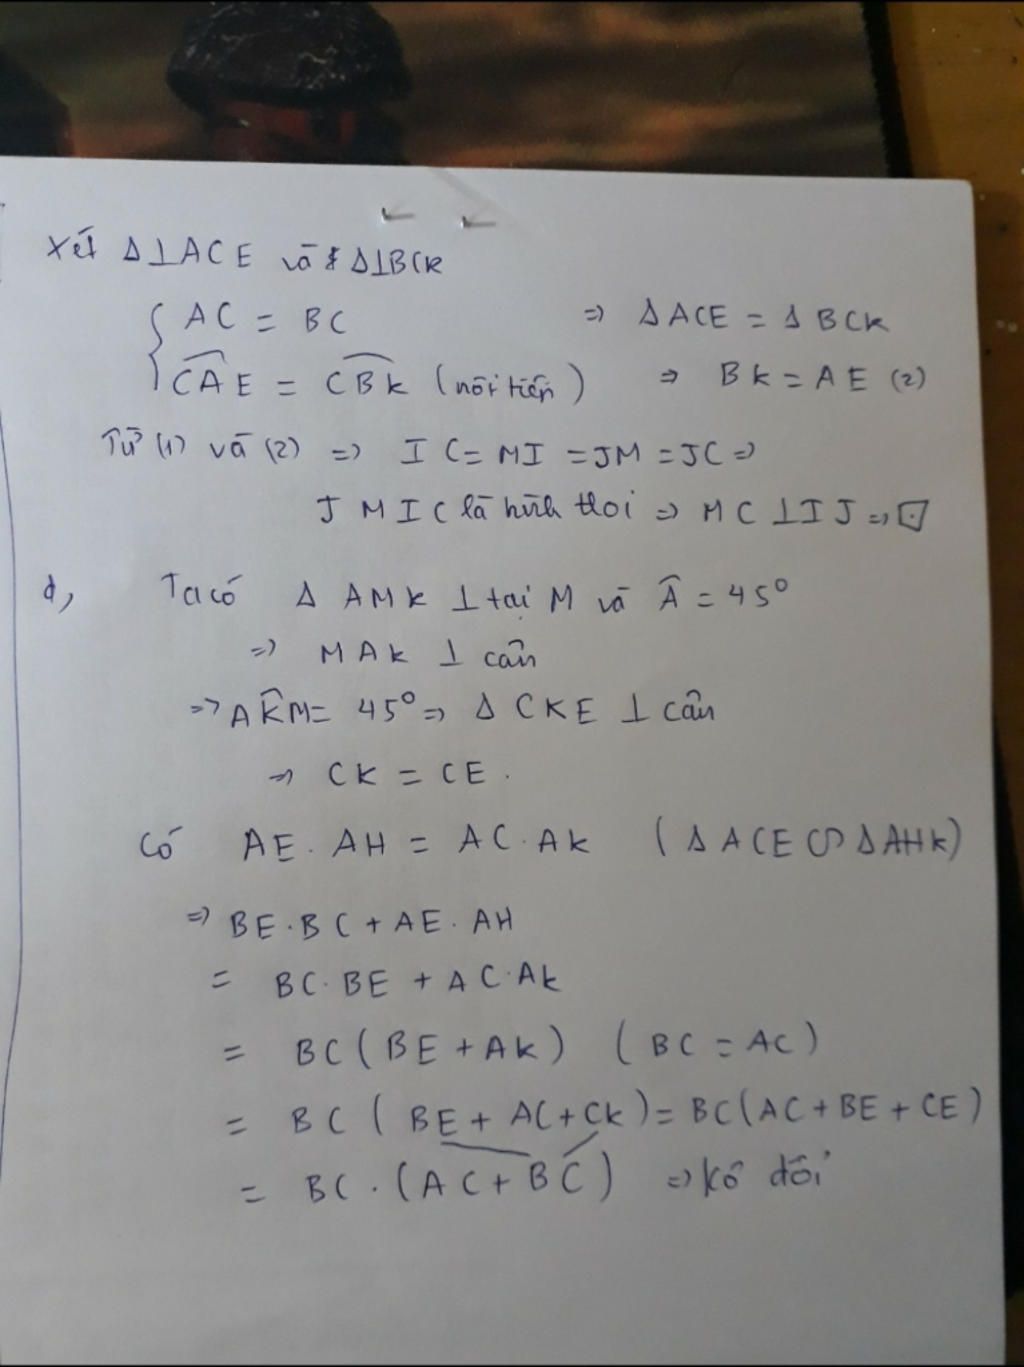 Xét Δ⊥ACE và Δ⊥BCK
AC = BC => Δ ACE = Δ BCK
CAE = CBK (nội tiếp) => BK = AE (2)
Từ (1) và (2) => IC = MI = JM = JC =>
JMIC là hình thoi => MC ⊥ IJ => ⊡
d, Ta có Δ AMK ⊥ tại M và Â = 45°
=> MAK ⊥ cân
=> AK̂M = 45° => Δ CKE ⊥ cân
=> CK = CE.
Có AE. AH = AC. AK (Δ ACE ∽ Δ AHK)
=> BE. BC + AE. AH
= BC. BE + AC. AK
= BC (BE + AK) (BC = AC)
= BC (BE + AC + CK) = BC (AC + BE + CE)
= BC. (AC + BC) => kô đổi